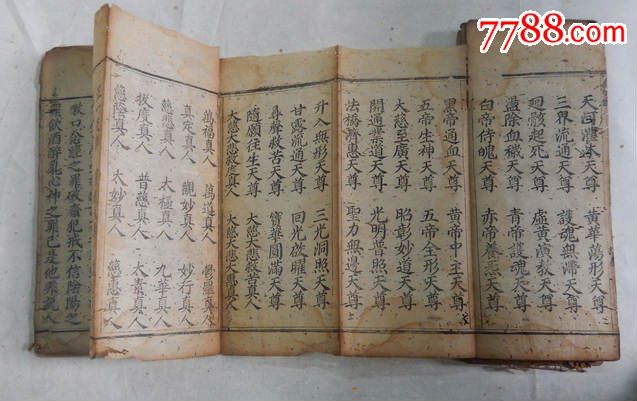 7788.com
天尊 黃華蕩形天尊
三界流通天尊 護魂無滯天尊
迴骸起死天尊 虛黃演教天尊
盪除血穢天尊 青帝護魂天尊
白帝侍魄天尊 赤帝養炁天尊
黑帝通血天尊 黃帝中主天尊
五帝生神天尊 五帝全形天尊
大慈至廣天尊 昭彰妙道天尊
開通業道天尊 光明普照天尊
法橋濟惠天尊 聖力無邊天尊
升入無形天尊 三光洞照天尊
甘露流通天尊 回光欲曜天尊
尋聲救苦天尊 寶華圓滿天尊
隨願往生天尊 大慈大悲救苦真人
大慈大悲救度真人 大慈大悲大孔真人
萬福真人 萬道真人
真定真人 觀妙真人 妙行真人
慈悲真人 太極真人 九華真人
拔度真人 普慈真人 太素真人
慈隱真人 大妙真人 慈惠真人
之罪破齋犯戒不信陰陽之
飲酒醉亂心神之罪已是他